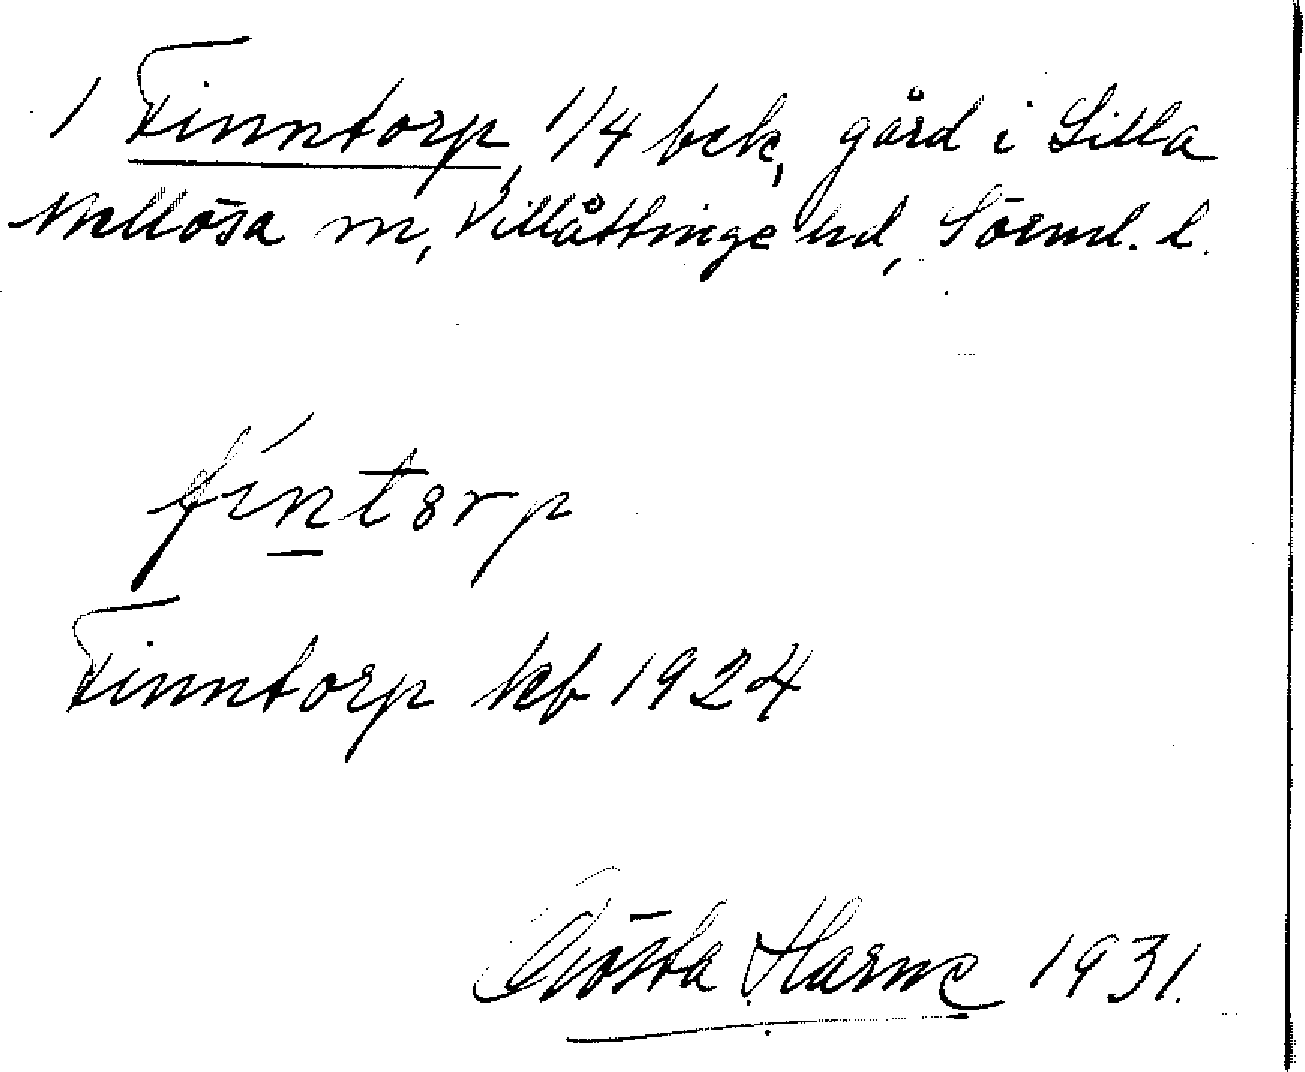 1 Finntorp, 1/4 bek, gård i Lilla
Mellösa sn, Villåttinge hd, Sörml. l.
fíntorp
Finntorp kb 1924
Gösta Harne 1931.